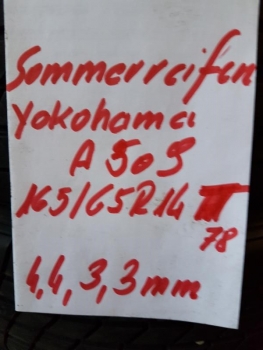 Sommerreifen
Yokohama
A 509
165/65R14
78
4,4,3,3mm